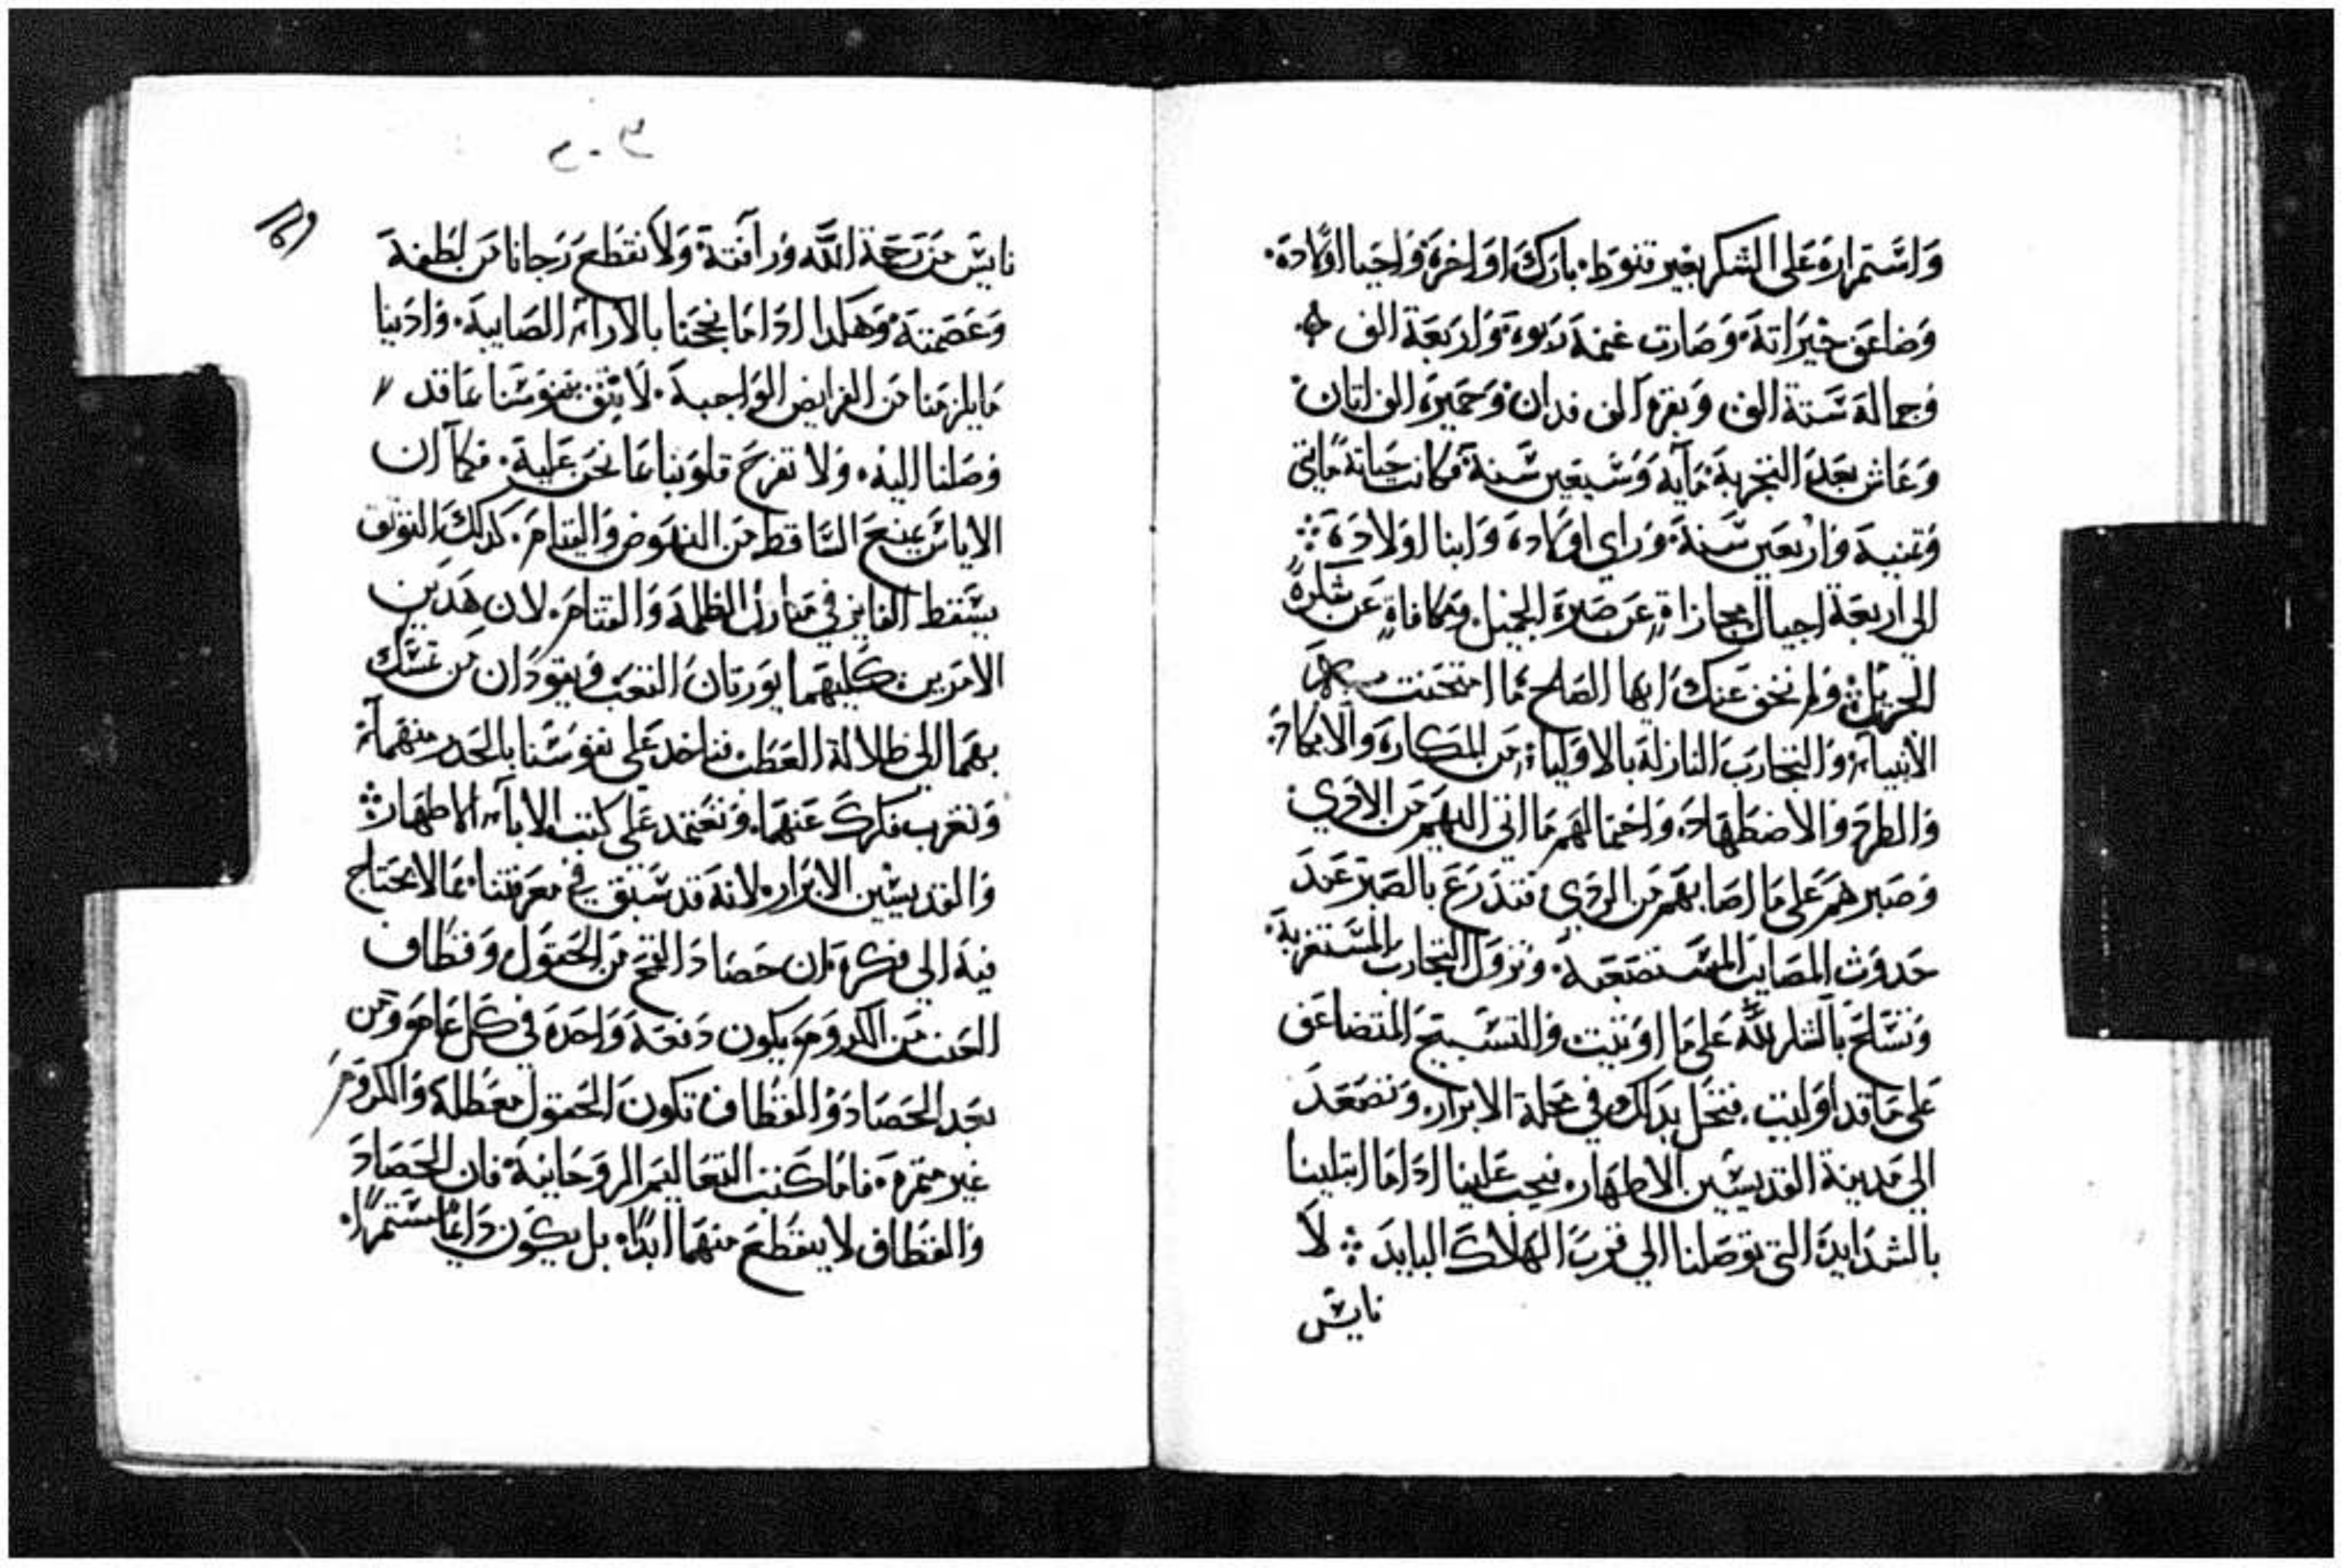 واستمراره على الشكر بغير قنوط. بارك اواخره واحيا اولاده.
وضاعف خيراته. وصارت غنمه ربوه. واربعة الف
وجماله ستة الف وبقره الف فدان وحميره الف اتان
وعاش بعد التجربة مايه وسبعين سنة. فكانت حياته مايتي
وتمنية واربعين سنة. وراي اولاده وابنا اولاده
الي اربعة اجيال مجازاة عن صبره الجميل ومكافاة عن شكره
الجزيل ولم نخف عنك ايها الصالح ما امتحنت به
الانبياء. والتجارب النازلة بالاولياء من المكاره والانكاد.
والطرد والاضطهاد. واحتمالهم ما اتي اليهم من الاذي
وصبرهم على ما اصابهم من الردي. فتدرع بالصبر عند
حدوث المصايب المستصعبة. ونزول التجارب المستغربة
وتسلح بالشكر لله على ما اوتيت والتسبيح المتضاعف
على ما قد اوليت. فتحل بدلك في محلة الابرار. وتصعد
الي مدينة القديسين الاطهار. فيجب علينا ادا ما ابتلينا
بالشدايد التي توصلنا الي قرب الهلاك البايد لا
نايس
٣٠٢
نايس من رحمة الله ورآفتة. ولا نقطع رجانا من لطفه
وعصمته. وهكدا ادا ما نجحنا بالاراء الصايبة. وادينا
ما يلزمنا من الفرايض الواجبة. لا تثق نفوسنا بما قد
وصلنا اليه. ولا تفرح قلوبنا بما نحن عليه. فكما ان
الاياس يمنع الساقط من النهوض والقيام. كدلك التوثق
يسقط الفايز في منازل الظلمة والقتام. لان هدين
الامرين كليهما يورتان التعب ويقودان من تمسك
بهما الي ظلالة العطب فناخد على نفوسنا بالحدر منهماء
ولتغرب فكرك عنهما. وتعتمد على كتب الاباء الاطهار
والقديسين الابرار. لانه قد سبق في معرفتنا ما لا يحتاج
فيه الي فكرة ان حصاد القمح من الحقول وقطاف
العنب من الكروم يكون دفعة واحدة في كل عام ومن
بعد الحصاد والقطاف تكون الحقول معطلة والكروم
غير متمرة. فاما كتب التعاليم الروحانية. فان الحصاد
والقطاف لا ينقطع منهما ابدا. بل يكون دايما مستمرا.